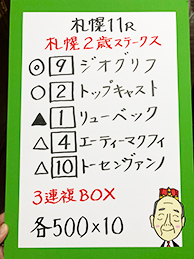 札幌11R
札幌2歳ステークス
◎ 9 ジオグリフ
○ 2 トップキャスト
▲ 1 リューベック
△ 4 エーティーマクフィ
△ 10 トーセンヴァンノ
3連複BOX
各500×10